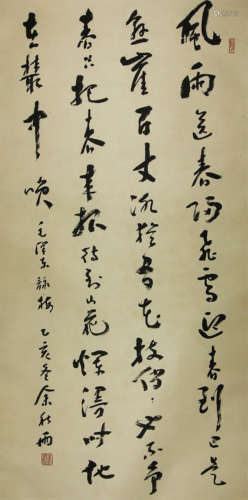 風雨送春歸飛雪迎春到已是
懸崖百丈冰猶有花枝俏俏也不爭
春只把春來報待到山花爛漫時她
在叢中笑 毛澤東詠梅 乙亥冬余秋雨